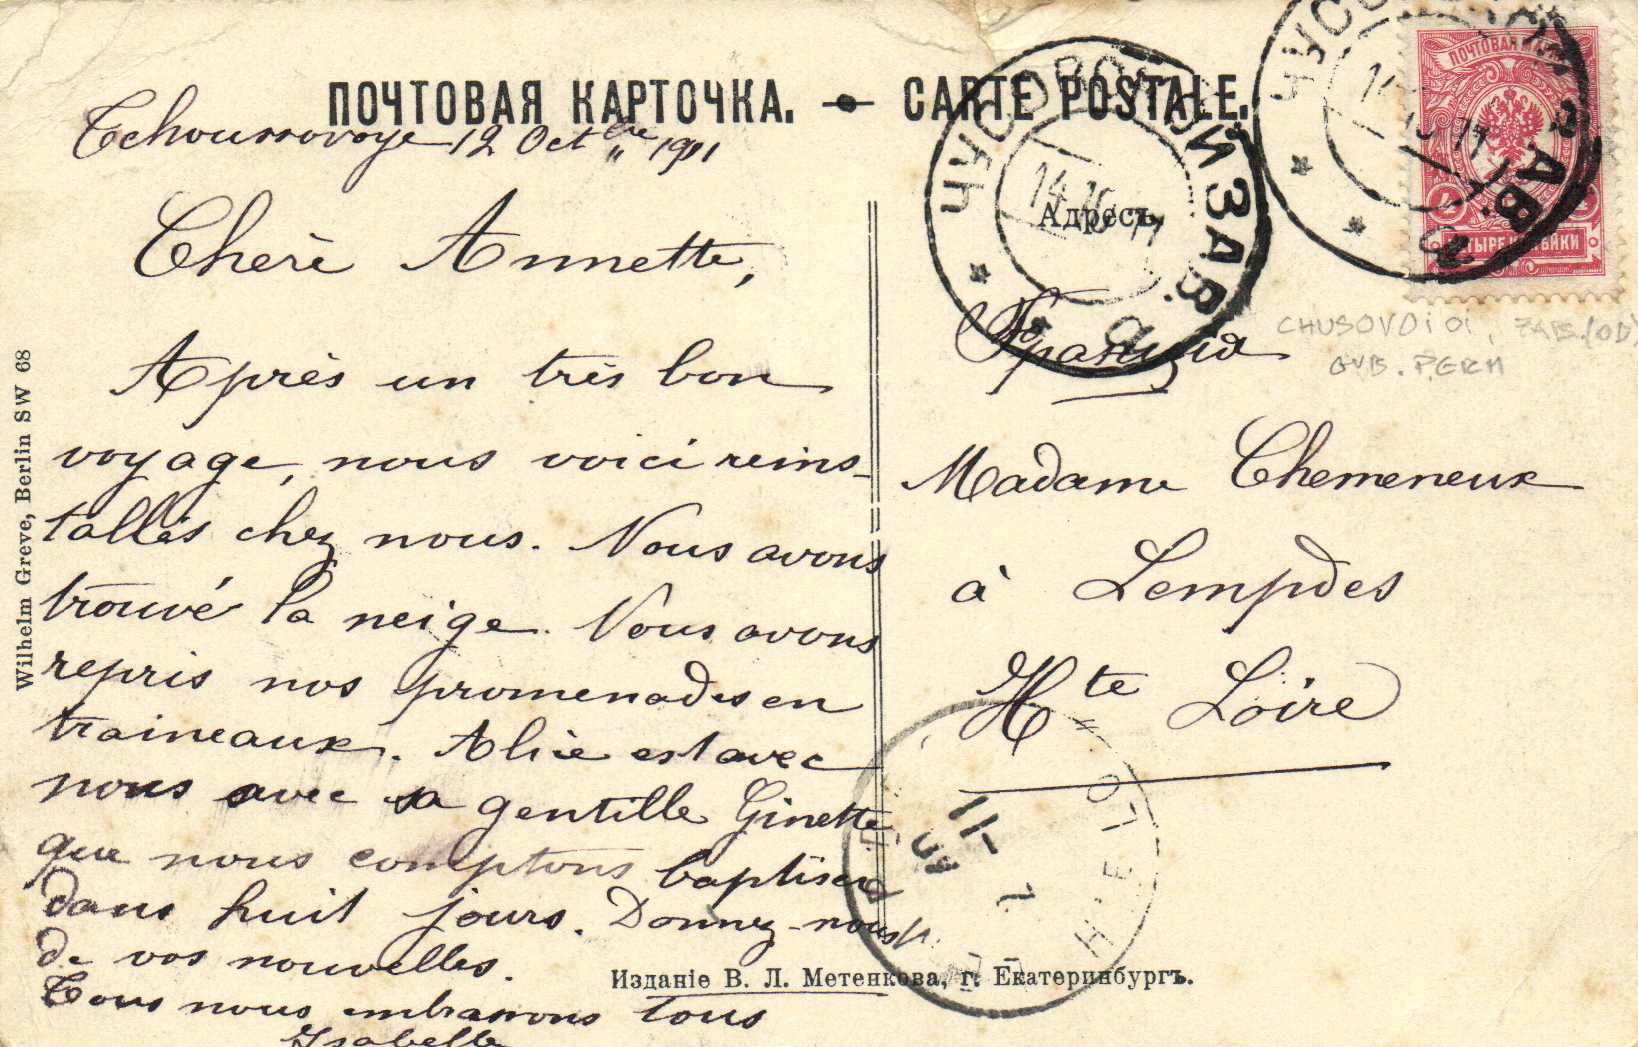 ПОЧТОВАЯ КАРТОЧКА. CARTE POSTALE.
Tchoussovoye 12 Oct bre 1911
Chère Annette,
Après un très bon
voyage, nous voici reins-
tallés chez nous. Nous avons
trouvé la neige. Nous avons
repris nos promenades en
traineaux. Alice est avec
nous avec sa gentille Ginette
que nous comptons baptiser
dans huit jours. Donnez-nous
de vos nouvelles.
Tous nous embrassons tous
Isabelle
Wilhelm Greve, Berlin SW 68
Адресъ.
Франція
Madame Chemeneux
à Lempdes
Hte Loire
Изданіе В. Л. Метенкова, г. Екатеринбургъ.
ЧУСОВСКОЙ ЗАВ.
14 10 11
ЧУСО ЗАВ.
ПОЧТОВАЯ МАРКА
4
ЧЕТЫРЕ КОПѢЙКИ
CHUSOVOI OI, ZAB.(OD)
GUB. PERM